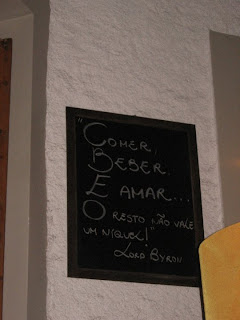 "COMER,
BEBER
E AMAR...
O RESTO NÃO VALE
UM NÍQUEL!"
LORD BYRON